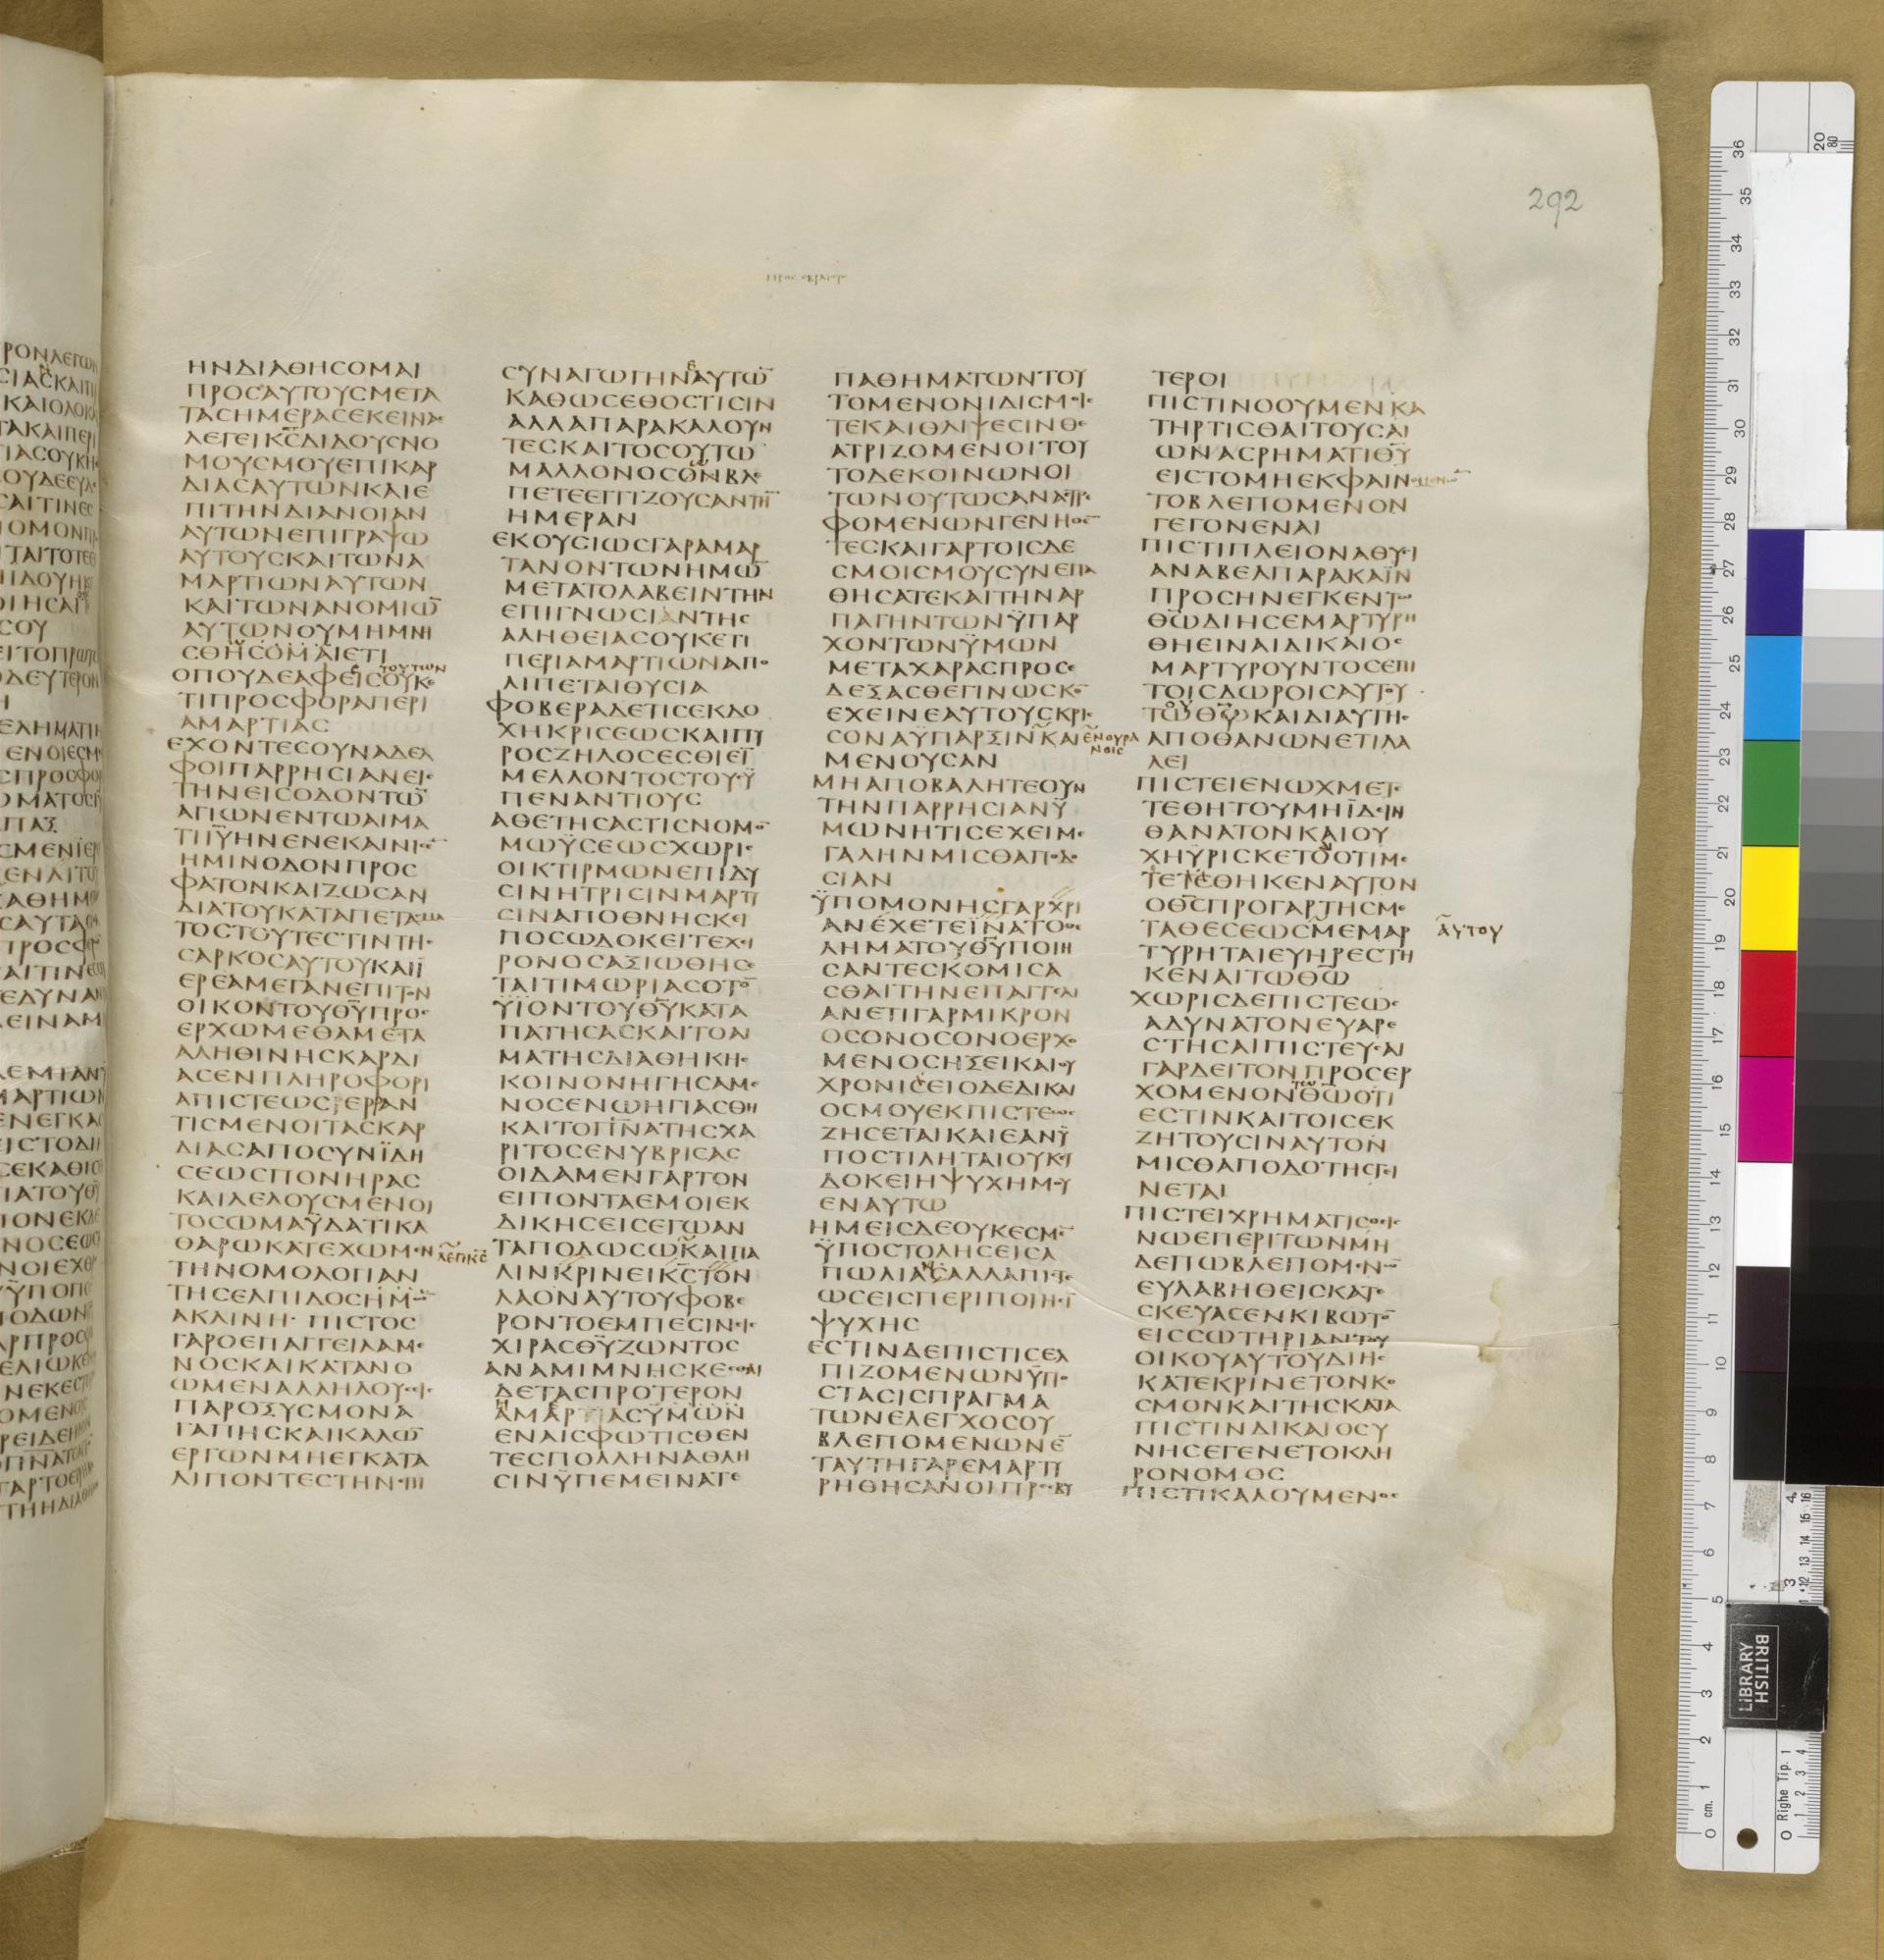 292
ΗΝΔΙΑΘΗϹΟΜΑΙ
ΠΡΟϹΑΥΤΟΥϹΜΕΤΑ
ΤΑϹΗΜΕΡΑϹΕΚΕΙΝΑϹ
ΛΕΓΕΙΚ̅Ϲ̅ΔΙΔΟΥϹΝΟ
ΜΟΥϹΜΟΥΕΠΙΚΑΡ
ΔΙΑϹΑΥΤΩΝΚΑΙΕ
ΠΙΤΗΝΔΙΑΝΟΙΑΝ
ΑΥΤΩΝΕΠΙΓΡΑΨΩ
ΑΥΤΟΥϹΚΑΙΤΩΝΑ
ΜΑΡΤΙΩΝΑΥΤΩΝ
ΚΑΙΤΩΝΑΝΟΜΙΩ̅
ΑΥΤΩΝΟΥΜΗΜΝΗ
ϹΘΗϹΟΜΑΙΕΤΙ
ΟΠΟΥΔΕΑΦΕϹΙϹΤΟΥΤΩΝΟΥΚΕ
ΤΙΠΡΟϹΦΟΡΑΠΕΡΙ
ΑΜΑΡΤΙΑϹ
ΕΧΟΝΤΕϹΟΥΝΑΔΕΛ
ΦΟΙΠΑΡΡΗϹΙΑΝΕΙϹ
ΤΗΝΕΙϹΟΔΟΝΤΩ̅
ΑΓΙΩΝΕΝΤΩΑΙΜΑ
ΤΙΙΥ̅ΗΝΕΝΕΚΑΙΝΙϹΕ̅
ΗΜΙΝΟΔΟΝΠΡΟϹ
ΦΑΤΟΝΚΑΙΖΩϹΑΝ
ΔΙΑΤΟΥΚΑΤΑΠΕΤΑϹΜΑ
ΤΟϹΤΟΥΤΕϹΤΙΝΤΗϹ
ϹΑΡΚΟϹΑΥΤΟΥΚΑΙΪ
ΕΡΕΑΜΕΓΑΝΕΠΙΤΟΝ
ΟΙΚΟΝΤΟΥΘ̅Υ̅ΠΡΟϹ
ΕΡΧΩΜΕΘΑΜΕΤΑ
ΑΛΗΘΙΝΗϹΚΑΡΔΙ
ΑϹΕΝΠΛΗΡΟΦΟΡΙ
ΑΠΙϹΤΕΩϹΡΕΡΑΝ
ΤΙϹΜΕΝΟΙΤΑϹΚΑΡ
ΔΙΑϹΑΠΟϹΥΝΪΔΗ
ϹΕΩϹΠΟΝΗΡΑϹ
ΚΑΙΛΕΛΟΥϹΜΕΝΟΙ
ΤΟϹΩΜΑΫΔΑΤΙΚΑ
ΘΑΡΩΚΑΤΕΧΩΜΕΝ
ΤΗΝΟΜΟΛΟΓΙΑΝ
ΤΗϹΕΛΠΙΔΟϹΗΜΩ̅
ΑΚΛΙΝΗ·ΠΙϹΤΟϹ
ΓΑΡΟΕΠΑΓΓΕΙΛΑΜΕ
ΝΟϹΚΑΙΚΑΤΑΝΟ
ΩΜΕΝΑΛΛΗΛΟΥϹΕΙϹ
ΠΑΡΟΞΥϹΜΟΝΑ
ΓΑΠΗϹΚΑΙΚΑΛΩ̅
ΕΡΓΩΝΜΗΕΓΚΑΤΑ
ΛΙΠΟΝΤΕϹΤΗΝΕΠΙ
ϹΥΝΑΓΩΓΗΝΕΑΥΤΩ̅
ΚΑΘΩϹΕΘΟϹΤΙϹΙΝ
ΑΛΛΑΠΑΡΑΚΑΛΟΥΝ
ΤΕϹΚΑΙΤΟϹΟΥΤΩ
ΜΑΛΛΟΝΟϹΩΝΒΛΕ
ΠΕΤΕΕΓΓΙΖΟΥϹΑΝΤΗ̅
ΗΜΕΡΑΝ
ΕΚΟΥϹΙΩϹΓΑΡΑΜΑΡ
ΤΑΝΟΝΤΩΝΗΜΩ̅
ΜΕΤΑΤΟΛΑΒΕΙΝΤΗΝ
ΕΠΙΓΝΩϹΙΑΝΤΗϹ
ΑΛΗΘΕΙΑϹΟΥΚΕΤΙ
ΠΕΡΙΑΜΑΡΤΙΩΝΑΠΟ
ΛΙΠΕΤΑΙΘΥϹΙΑ
ΦΟΒΕΡΑΔΕΤΙϹΕΚΔΟ
ΧΗΚΡΙϹΕΩϹΚΑΙΠΥ
ΡΟϹΖΗΛΟϹΕϹΘΙΕΙ̅
ΜΕΛΛΟΝΤΟϹΤΟΥϹΫ
ΠΕΝΑΝΤΙΟΥϹ
ΑΘΕΤΗϹΑϹΤΙϹΝΟΜΟ̅
ΜΩΫϹΕΩϹΧΩΡΙϹ
ΟΙΚΤΙΡΜΩΝΕΠΙΔΥ
ϹΙΝΗΤΡΙϹΙΝΜΑΡΤΥ
ϹΙΝΑΠΟΘΝΗϹΚΕΙ
ΠΟϹΩΔΟΚΕΙΤΕΧΕΙ
ΡΟΝΟϹΑΞΙΩΘΗϹΕ
ΤΑΙΤΙΜΩΡΙΑϹΟΤΟ̅
ΫΙΟΝΤΟΥΘ̅Υ̅ΚΑΤΑ
ΠΑΤΗϹΑϹΚΑΙΤΟΑΙ
ΜΑΤΗϹΔΙΑΘΗΚΗϹ
ΚΟΙΝΟΝΗΓΗϹΑΜΕ
ΝΟϹΕΝΩΗΓΙΑϹΘΗ
ΚΑΙΤΟΠ̅Ν̅ΑΤΗϹΧΑ
ΡΙΤΟϹΕΝΥΒΡΙϹΑϹ
ΟΙΔΑΜΕΝΓΑΡΤΟΝ
ΕΙΠΟΝΤΑΕΜΟΙΕΚ
ΔΙΚΗϹΕΙϹΕΓΩΑΝ
ΛΕΓΕΙΚ̅Ϲ̅
ΤΑΠΟΔΩϹΩΚΑΙΠΑ
ΛΙΝΚΡΙΝΕΙΚ̅Ϲ̅ΤΟΝ
ΛΑΟΝΑΥΤΟΥΦΟΒΕ
ΡΟΝΤΟΕΜΠΕϹΙΝΕΙϹ
ΧΙΡΑϹΘ̅Υ̅ΖΩΝΤΟϹ
ΑΝΑΜΙΜΝΗϹΚΕϹΘΑΙ
ΔΕΤΑϹΠΡΟΤΕΡΟΝ
ΑΜΑΡΤΙΑϹΫΜΩΝ
ΕΝΑΙϹΦΩΤΙϹΘΕΝ
ΤΕϹΠΟΛΛΗΝΑΘΛΗ
ϹΙΝΫΠΕΜΕΙΝΑΤΕ
ΠΑΘΗΜΑΤΩΝΤΟΥ
ΤΟΜΕΝΟΝΙΔΙϹΜΟΙϹ
ΤΕΚΑΙΘΛΙΨΕϹΙΝΘΕ
ΑΤΡΙΖΟΜΕΝΟΙΤΟΥ
ΤΟΔΕΚΟΙΝΩΝΟΙ
ΤΩΝΟΥΤΩϹΑΝΑϹΤΡΕ
ΦΟΜΕΝΩΝΓΕΝΗΘΕ̅
ΤΕϹΚΑΙΓΑΡΤΟΙϹΔΕ
ϹΜΟΙϹΜΟΥϹΥΝΕΠΑ
ΘΗϹΑΤΕΚΑΙΤΗΝΑΡ
ΠΑΓΗΝΤΩΝΫΠΑΡ
ΧΟΝΤΩΝΫΜΩΝ
ΜΕΤΑΧΑΡΑϹΠΡΟϹΕ
ΔΕΞΑϹΘΕΓΙΝΩϹΚΟ̅
ΕΧΕΙΝΕΑΥΤΟΥϹΚΡΙϹ
ϹΟΝΑΫΠΑΡΞΙΝΕΝΟΥΡΑΝΟΙϹΚΑΙ
ΜΕΝΟΥϹΑΝ
ΜΗΑΠΟΒΑΛΗΤΕΟΥΝ
ΤΗΝΠΑΡΡΗϹΙΑΝΫ
ΜΩΝΗΤΙϹΕΧΕΙΜΕ
ΓΑΛΗΝΜΙϹΘΑΠΟΔΟ
ϹΙΑΝ
ΫΠΟΜΟΝΗϹΓΑΡΧΡΙ
ΑΝΕΧΕΤΕΪΝΑΤΟΘΕ
ΛΗΜΑΤΟΥΘ̅Υ̅ΠΟΙΗ
ϹΑΝΤΕϹΚΟΜΙϹΑ
ϹΘΑΙΤΗΝΕΠΑΓΓΕΛΙ
ΑΝΕΤΙΓΑΡΜΙΚΡΟΝ
ΟϹΟΝΟϹΟΝΟΕΡΧΟ
ΜΕΝΟϹΗΞΕΙΚΑΙΟΥ
ΧΡΟΝΙϹΕΙΟΔΕΔΙΚΑΙ
ΟϹΜΟΥΕΚΠΙϹΤΕΩϹ
ΖΗϹΕΤΑΙΚΑΙΕΑΝΫ
ΠΟϹΤΙΛΗΤΑΙΟΥΚΕΥ
ΔΟΚΕΙΗΨΥΧΗΜΟΥ
ΕΝΑΥΤΩ
ΗΜΕΙϹΔΕΟΥΚΕϹΜΕ̅
ΫΠΟϹΤΟΛΗϹΕΙϹΑ
ΠΩΛΙΑΝΑΛΛΑΠΙϹΤΕ
ΩϹΕΙϹΠΕΡΙΠΟΙΗϹΙ̅
ΨΥΧΗϹ
ΕϹΤΙΝΔΕΠΙϹΤΙϹΕΛ
ΠΙΖΟΜΕΝΩΝΫΠΟ
ϹΤΑϹΙϹΠΡΑΓΜΑ
ΤΩΝΕΛΕΓΧΟϹΟΥ
ΒΛΕΠΟΜΕΝΩΝΕ̅
ΤΑΥΤΗΓΑΡΕΜΑΡΤΥ
ΡΗΘΗϹΑΝΟΙΠΡΕϹΒΥ
ΤΕΡΟΙ
ΠΙϹΤΙΝΟΟΥΜΕΝΚΑ
ΤΗΡΤΙϹΘΑΙΤΟΥϹΑΙ
ΩΝΑϹΡΗΜΑΤΙΘ̅Υ̅
ΕΙϹΤΟΜΗΕΚΦΑΙΝΟΜΕΝΩ̅
ΤΟΒΛΕΠΟΜΕΝΟΝ
ΓΕΓΟΝΕΝΑΙ
ΠΙϹΤΙΠΛΕΙΟΝΑΘΥϹΙ
ΑΝΑΒΕΛΠΑΡΑΚΑΪΝ
ΠΡΟϹΗΝΕΓΚΕΝΤΩ
Θ̅Ω̅ΔΙΗϹΕΜΑΡΤΥΡΗ
ΘΗΕΙΝΑΙΔΙΚΑΙΟϹ
ΜΑΡΤΥΡΟΥΝΤΟϹΕΠΙ
ΤΟΙϹΔΩΡΟΙϹΑΥΤΟΥ
ΤΩΘ̅Ω̅ΚΑΙΔΙΑΥΤΗϹ
ΑΠΟΘΑΝΩΝΕΤΙΛΑ
ΛΕΙ
ΠΙϹΤΕΙΕΝΩΧΜΕΤΕ
ΤΕΘΗΤΟΥΜΗΪΔΕΙΝ
ΘΑΝΑΤΟΝΚΑΙΟΥ
ΧΗΫΡΙϹΚΕΤΟΔΙΟΤΙΜΕ
ΤΕΤΕΘΗΚΕΝΑΥΤΟΝ
ΟΘ̅Ϲ̅ΠΡΟΓΑΡΤΗϹΜΕ
ΤΑΘΕϹΕΩϹΜΕΜΑΡ
ΑΥΤΟΥ
ΤΥΡΗΤΑΙΕΥΗΡΕϹΤΗ
ΚΕΝΑΙΤΩΘ̅Ω̅
ΧΩΡΙϹΔΕΠΙϹΤΕΩϹ
ΑΔΥΝΑΤΟΝΕΥΑΡΕ
ϹΤΗϹΑΙΠΙϹΤΕΥϹΑΙ
ΓΑΡΔΕΙΤΟΝΠΡΟϹΕΡ
ΧΟΜΕΝΟΝΤΩΘ̅Ω̅ΟΤΙ
ΕϹΤΙΝΚΑΙΤΟΙϹΕΚ
ΖΗΤΟΥϹΙΝΑΥΤΟΝ
ΜΙϹΘΑΠΟΔΟΤΗϹΓΙ
ΝΕΤΑΙ
ΠΙϹΤΕΙΧΡΗΜΑΤΙϹΘΕΙϹ
ΝΩΕΠΕΡΙΤΩΝΜΗ
ΔΕΠΩΒΛΕΠΟΜΕΝΩ̅
ΕΥΛΑΒΗΘΕΙϹΚΑΤΕ
ϹΚΕΥΑϹΕΝΚΙΒΩΤΟ̅
ΕΙϹϹΩΤΗΡΙΑΝΤΟΥ
ΟΙΚΟΥΑΥΤΟΥΔΙΗϹ
ΚΑΤΕΚΡΙΝΕΤΟΝΚΟ
ϹΜΟΝΚΑΙΤΗϹΚΑΤΑ
ΠΙϹΤΙΝΔΙΚΑΙΟϹΥ
ΝΗϹΕΓΕΝΕΤΟΚΛΗ
ΡΟΝΟΜΟϹ
ΠΙϹΤΙΚΑΛΟΥΜΕΝΟϹ
BRITISH
LIBRARY